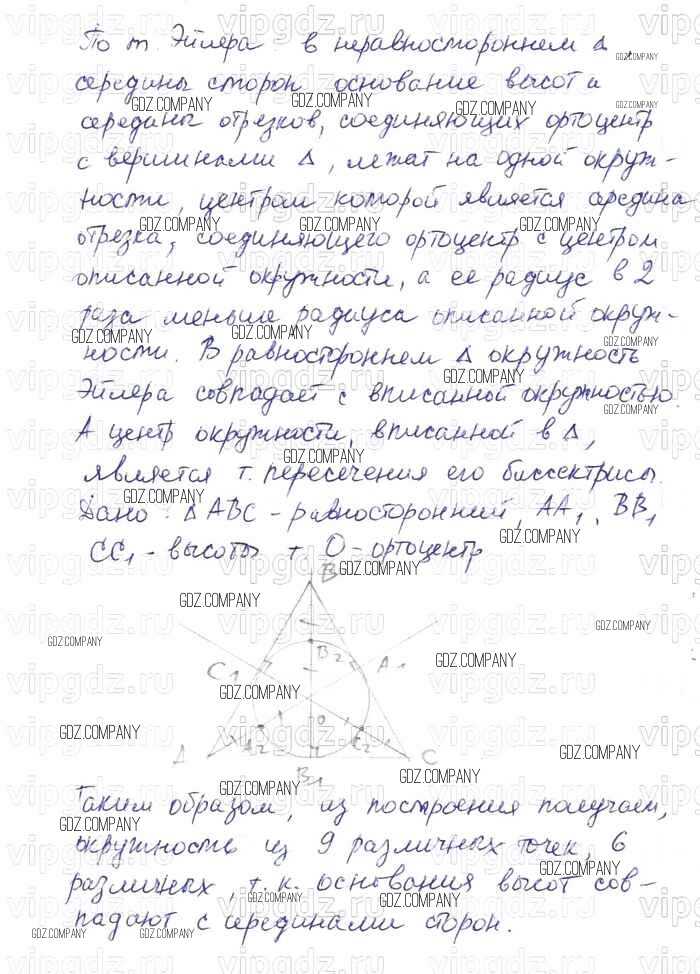 По т. Эйлера в неравностороннем Δ
середины сторон основание высот и
середины отрезков, соединяющих ортоцентр
с вершинами Δ, лежат на одной окруж-
ности, центром которой является середина
отрезка, соединяющего ортоцентр с центром
описанной окружности, а ее радиус в 2
раза меньше радиуса описанной окруж-
ности. В равностороннем Δ окружность
Эйлера совпадает с вписанной окружностью.
А центр окружности, вписанной в Δ,
является т. пересечения его биссектрисы.
Дано: ΔABC - равносторонний, AA1, BB1
CC1 - высоты т O - ортоцентр
B
B2
C1 A1
O
A2 C2
A C
B1
Таким образом, из построения получаем,
окружность из 9 различных точек, 6
различных, т.к. основания высот сов-
падают с серединами сторон.
vipgdz.ru
GDZ.COMPANY